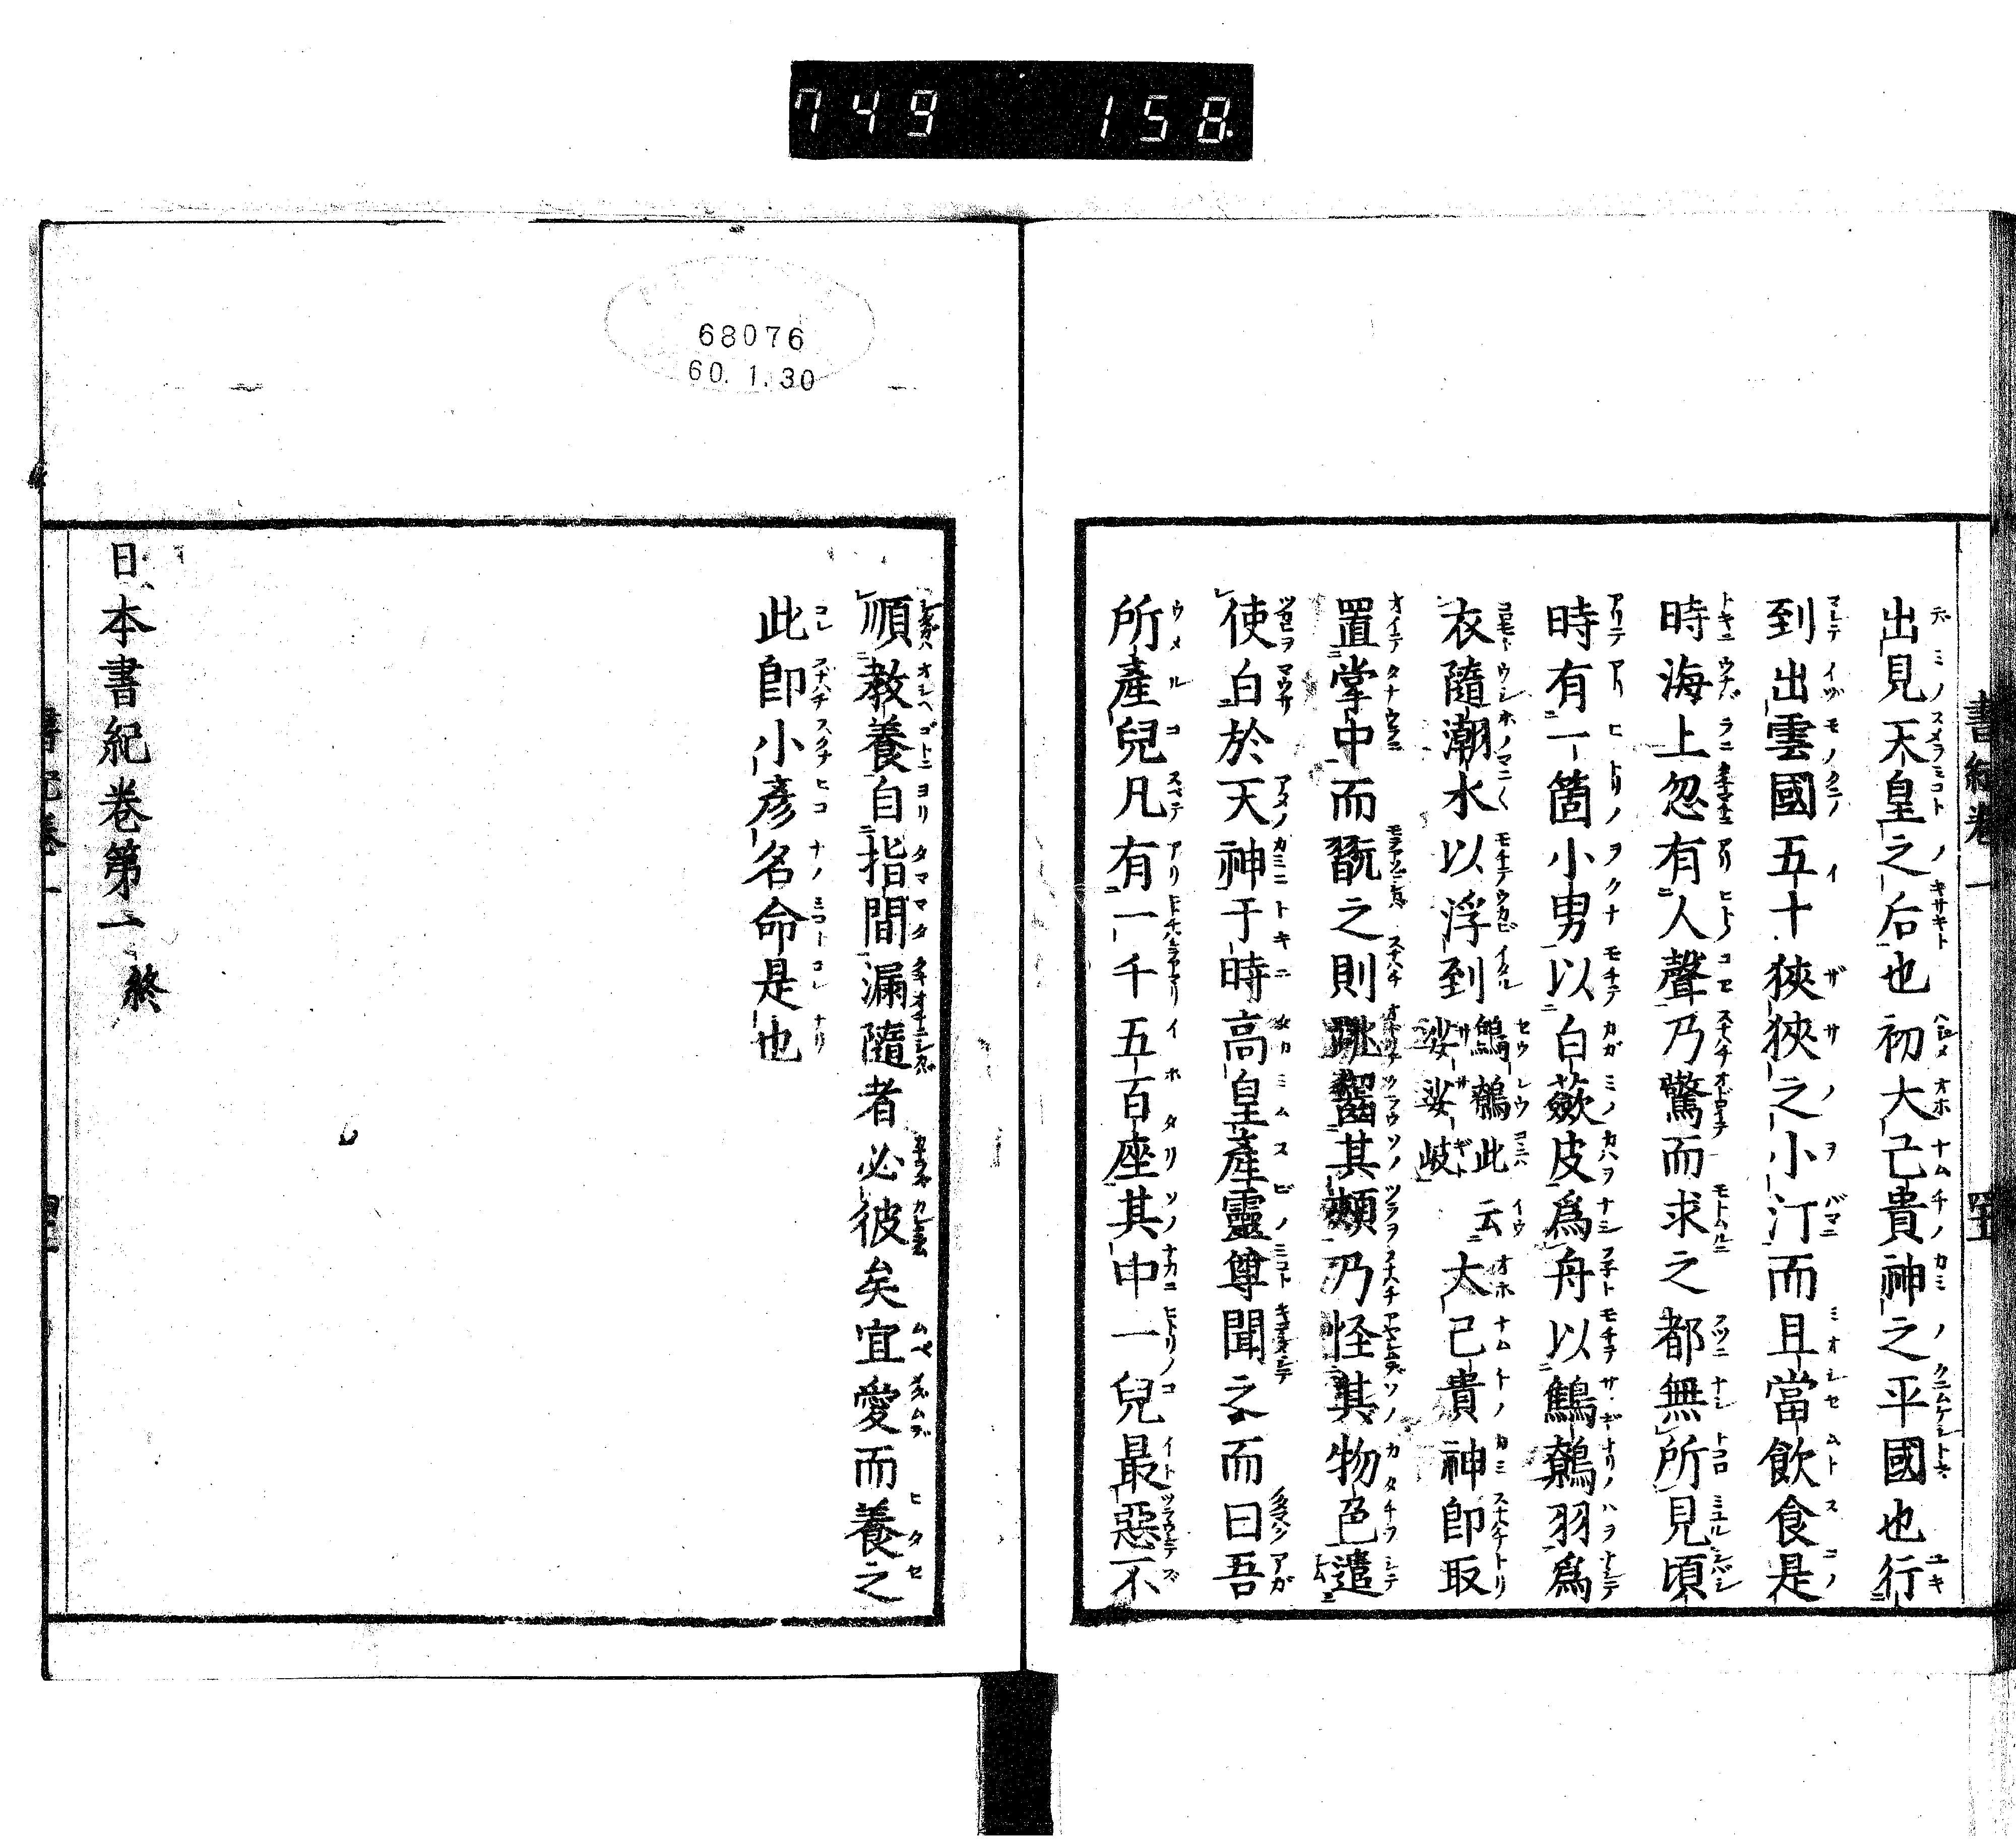 749 158
出見天皇之后也初大己貴神之平國也行
到出雲國五十狹狹之小汀而且當飲食是
時海上忽有人聲乃驚而求之都無所見頃
時有一箇小男以白蘞皮爲舟以鷦鷯羽爲
衣隨潮水以浮到鷦鷯此云娑娑岐大己貴神卽取
置掌中而翫之則跳囓其頰乃怪其物色遣
使白於天神于時高皇產靈尊聞之而曰吾
所產兒凡有一千五百座其中一兒最惡不
68076
60.1.30
順教養自指間漏隨者必彼矣宜愛而養之
此卽小彥名命是也
日本書紀卷第一終